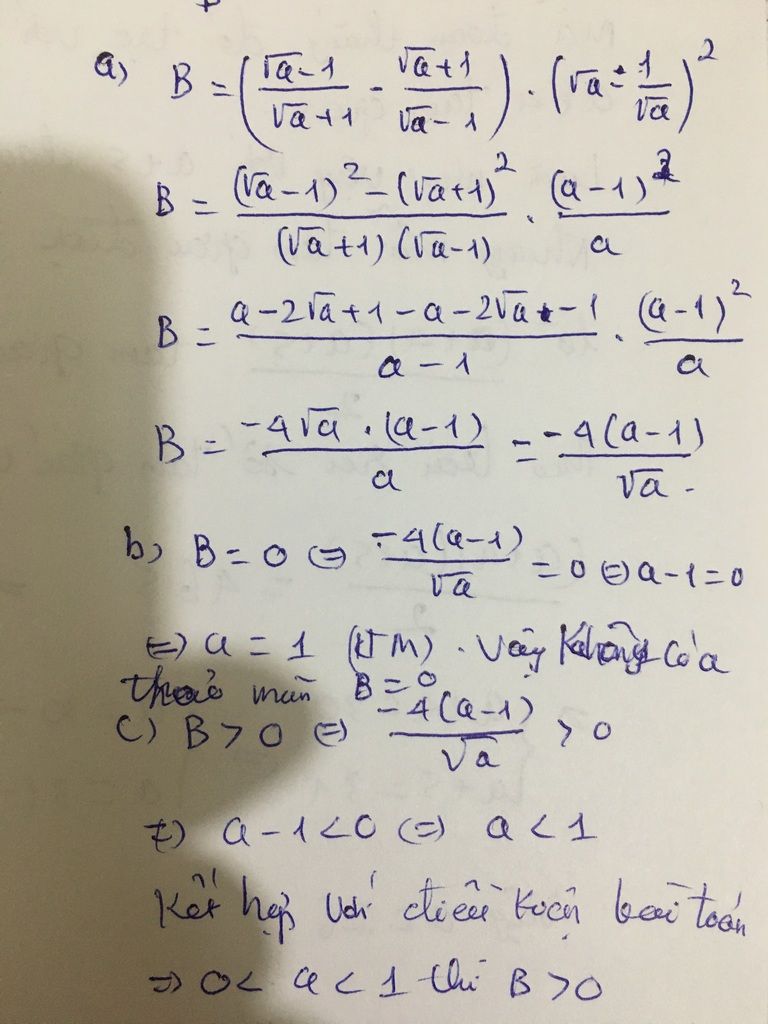 a) B = ( (√a - 1)/(√a + 1) - (√a + 1)/(√a - 1) ) . (√a - 1/√a)²
B = ((√a - 1)² - (√a + 1)²)/((√a + 1)(√a - 1)) . (a - 1)²/a
B = (a - 2√a + 1 - a - 2√a - 1)/(a - 1) . (a - 1)²/a
B = (-4√a . (a - 1))/a = (-4(a - 1))/√a .
b) B = 0 ⇔ (-4(a - 1))/√a = 0 ⇔ a - 1 = 0
⇔ a = 1 (KTM) . Vậy không có a
thoả mãn B = 0
c) B > 0 ⇔ (-4(a - 1))/√a > 0
⇔ a - 1 < 0 ⇔ a < 1
Kết hợp với điều kiện bài toán
⇒ 0 < a < 1 thì B > 0